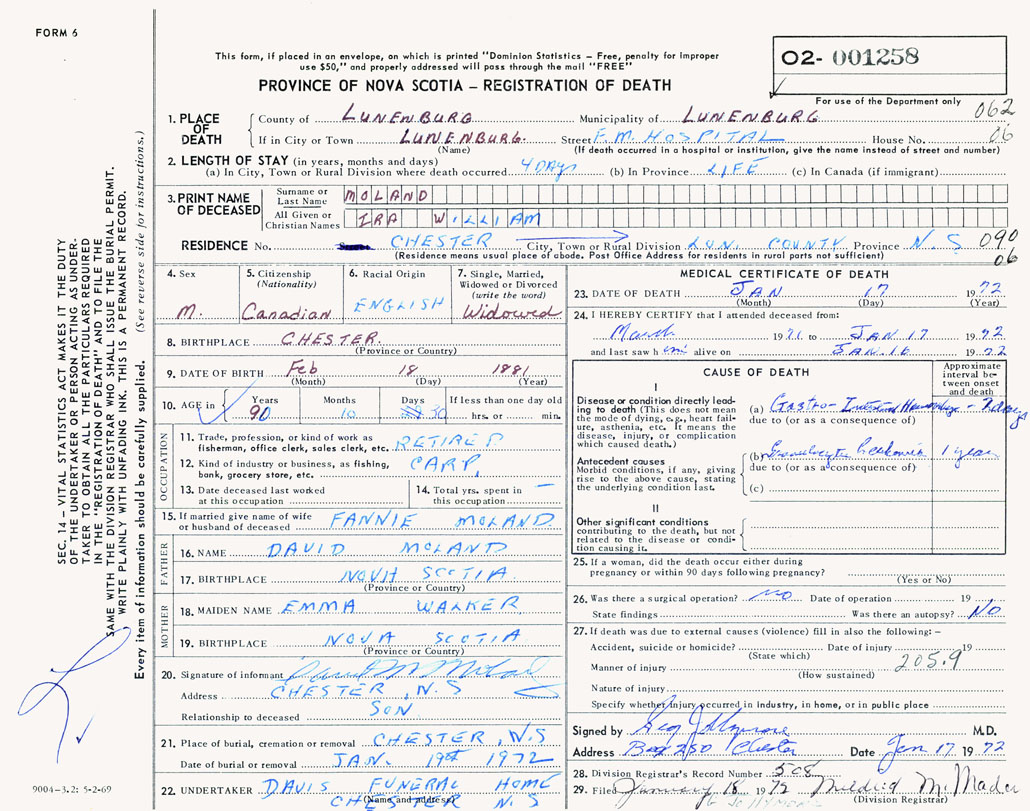 FORM 6
This form, if placed in an envelope, on which is printed "Dominion Statistics – Free, penalty for improper
use $50," and properly addressed will pass through the mail "FREE"
O2- 001258
PROVINCE OF NOVA SCOTIA – REGISTRATION OF DEATH
For use of the Department only
062
1. PLACE OF DEATH County of LUNENBURG Municipality of LUNENBURG
If in City or Town LUNENBURG. Street F. M. HOSPITAL House No. 06
(Name) (If death occurred in a hospital or institution, give the name instead of street and number)
2. LENGTH OF STAY (in years, months and days)
(a) In City, Town or Rural Division where death occurred 4 DAYS (b) In Province LIFE (c) In Canada (if immigrant)
3. PRINT NAME OF DECEASED Surname or Last Name MOLAND
All Given or Christian Names IRA WILLIAM
RESIDENCE No. CHESTER City, Town or Rural Division LUN. COUNTY Province N.S 090
(Residence means usual place of abode. Post Office Address for residents in rural parts not sufficient) 06
4. Sex 5. Citizenship (Nationality) 6. Racial Origin 7. Single, Married, Widowed or Divorced (write the word)
M. Canadian ENGLISH Widowed
8. BIRTHPLACE CHESTER.
(Province or Country)
9. DATE OF BIRTH Feb 18 1881
(Month) (Day) (Year)
10. AGE in Years Months Days If less than one day old
90 10 30 hrs. or min.
OCCUPATION
11. Trade, profession, or kind of work as fisherman, office clerk, sales clerk, etc. RETIRED
12. Kind of industry or business, as fishing, bank, grocery store, etc. CARP.
13. Date deceased last worked at this occupation
14. Total yrs. spent in this occupation –
15. If married give name of wife or husband of deceased FANNIE MOLAND
FATHER
16. NAME DAVID MOLAND
17. BIRTHPLACE NOVA SCOTIA
(Province or Country)
MOTHER
18. MAIDEN NAME EMMA WALKER
19. BIRTHPLACE NOVA SCOTIA
(Province or Country)
20. Signature of informant
Address CHESTER, N.S
Relationship to deceased SON
21. Place of burial, cremation or removal CHESTER, N.S
Date of burial or removal JAN. 19th 1972
22. UNDERTAKER DAVIS FUNERAL HOME
(Name and address) CHESTER N.S
MEDICAL CERTIFICATE OF DEATH
23. DATE OF DEATH JAN 17 1972
(Month) (Day) (Year)
24. I HEREBY CERTIFY that I attended deceased from:
March 1971 to JAN 17 1972
and last saw him alive on JAN 16 1972
CAUSE OF DEATH
Approximate interval between onset and death
I
Disease or condition directly leading to death (This does not mean the mode of dying, e.g., heart failure, asthenia, etc. It means the disease, injury, or complication which caused death.)
(a) Gastro-Intestinal Hemorrhage -
due to (or as a consequence of)
Antecedent causes
Morbid conditions, if any, giving rise to the above cause, stating the underlying condition last.
(b) Granulocytic Leukemia 1 year
due to (or as a consequence of)
(c)
II
Other significant conditions contributing to the death, but not related to the disease or condition causing it.
25. If a woman, did the death occur either during pregnancy or within 90 days following pregnancy?
(Yes or No)
26. Was there a surgical operation? NO Date of operation 19
State findings Was there an autopsy? NO
27. If death was due to external causes (violence) fill in also the following: –
Accident, suicide or homicide? Date of injury 19
(State which) 205.9
Manner of injury
(How sustained)
Nature of injury
Specify whether injury occurred in industry, in home, or in public place
Signed by M.D.
Address Box 250 Chester Date Jan 17 1972
28. Division Registrar's Record Number 508
29. Filed January 18 1972 Mildred M. Mader
(Division Registrar)
SEC. 14 – VITAL STATISTICS ACT MAKES IT THE DUTY
OF THE UNDERTAKER OR PERSON ACTING AS UNDERTAKER
TO OBTAIN ALL THE PARTICULARS REQUIRED
IN THE "REGISTRATION OF DEATH" AND TO FILE THE
SAME WITH THE DIVISION REGISTRAR WHO SHALL ISSUE THE BURIAL PERMIT.
WRITE PLAINLY WITH UNFADING INK. THIS IS A PERMANENT RECORD.
Every item of information should be carefully supplied. (See reverse side for instructions.)
9004-3.2: 5-2-69